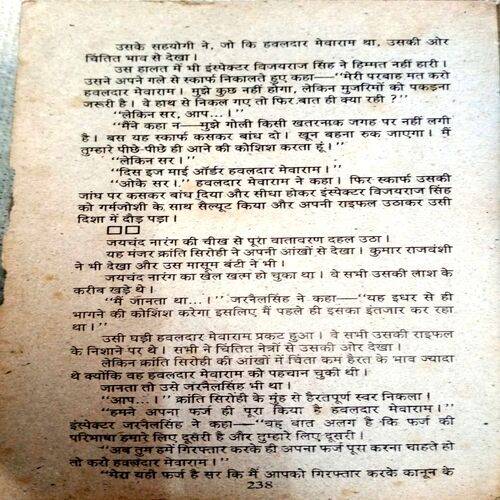 उसके सहयोगी ने, जो कि हवलदार मेवाराम था, उसकी ओर
चिंतित भाव से देखा।
उस हालत में भी इंस्पेक्टर विजयराज सिंह ने हिम्मत नहीं हारी।
उसने अपने गले से स्कार्फ निकालते हुए कहा—"मेरी परबाह मत करो
हवलदार मेवाराम। मुझे कुछ नहीं होगा, लेकिन मुजरिमों को पकड़ना
जरूरी है। वे हाथ से निकल गए तो फिर बात ही क्या रही ?"
"लेकिन सर, आप...।"
"मैंने कहा न—मुझे गोली किसी खतरनाक जगह पर नहीं लगी
है। बस यह स्कार्फ कसकर बांध दो। खून बहना रुक जाएगा। मैं
तुम्हारे पीछे-पीछे ही आने की कोशिश करता हूं।"
"लेकिन सर।"
"दिस इज माई ऑर्डर हवलदार मेवाराम।"
"ओके सर।" हवलदार मेवाराम ने कहा। फिर स्कार्फ उसकी
जांघ पर कसकर बांध दिया और सीधा होकर इंस्पेक्टर विजयराज सिंह
को गर्मजोशी के साथ सैल्यूट किया और अपनी राइफल उठाकर उसी
दिशा में दौड़ पड़ा।
जयचंद नारंग की चीख से पूरा वातावरण दहल उठा।
यह मंजर क्रांति सिरोही ने अपनी आंखों से देखा। कुमार राजवंशी
ने भी देखा और उस मासूम बंटी ने भी।
जयचंद नारंग का खेल खत्म हो चुका था। वे सभी उसकी लाश के
करीब खड़े थे।
"मैं जानता था...।" जरनैलसिंह ने कहा—"यह इधर से ही
भागने की कोशिश करेगा इसलिए मैं पहले ही इसका इंतजार कर रहा
था।"
उसी घड़ी हवलदार मेवाराम प्रकट हुआ। वे सभी उसकी राइफल
के निशाने पर थे। सभी ने चिंतित नेत्रों से उसकी ओर देखा।
लेकिन क्रांति सिरोही की आंखों में चिंता कम हैरत के भाव ज्यादा
थे क्योंकि वह हवलदार मेवाराम को पहचान चुकी थी।
जानता तो उसे जरनैलसिंह भी था।
"आप...।" क्रांति सिरोही के मुंह से हैरतपूर्ण स्वर निकला।
"हमने अपना फर्ज ही पूरा किया है हवलदार मेवाराम।"
इंस्पेक्टर जरनैलसिंह ने कहा—"यह बात अलग है कि फर्ज की
परिभाषा हमारे लिए दूसरी है और तुम्हारे लिए दूसरी।
"अब तुम हमें गिरफ्तार करके ही अपना फर्ज पूरा करना चाहते हो
तो करो हवलदार मेवाराम।"
"मेरा यही फर्ज है सर कि मैं आपको गिरफ्तार करके कानून के
238